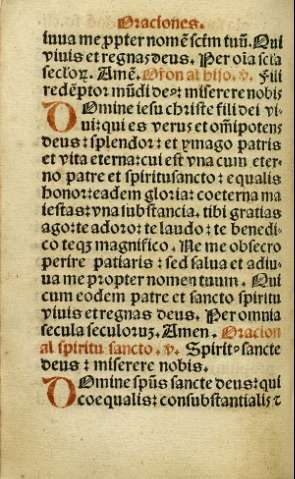 Oraciones.
iuua me ꝓpter nomē sctm̄ tuū. Qui
viuis et regnas deus. Per oīa scl̄a
seclorꝝ. Amē. Orōn al hijo. v. Fili
redēptor mūdi deꝰ: miserere nobis
Domine iesu christe fili dei vi-
ui: qui es verus et oīnipotens
deus: splendor: et ymago patris
et vita eterna: cui est vna cum eter-
no patre et spiritusancto: equalis
honor: eadem gloria: coeterna ma
iestas: vna substancia. tibi gratias
ago: te adoro: te laudo: te benedi-
co teqȝ magnifico. Ne me obsecro
perire patiaris: sed salua et adiu-
ua me propter nomen tuum. Qui
cum eodem patre et sancto spiritu
viuis et regnas deus. Per omnia
secula seculoruȝ. Amen. Oracion
al spiritu sancto. v. Spiritꝰ sancte
deus: miserere nobis.
Domine spūs sancte deus: qui
coequalis: consubstantialis ⁊